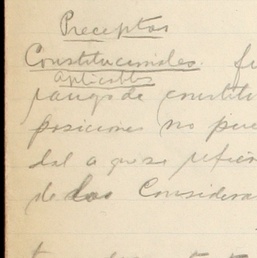 Preceptos
Constitucionales. fu
aplicables
rango de constitu
posiciones no pue
dal a que se refier
de los Considera